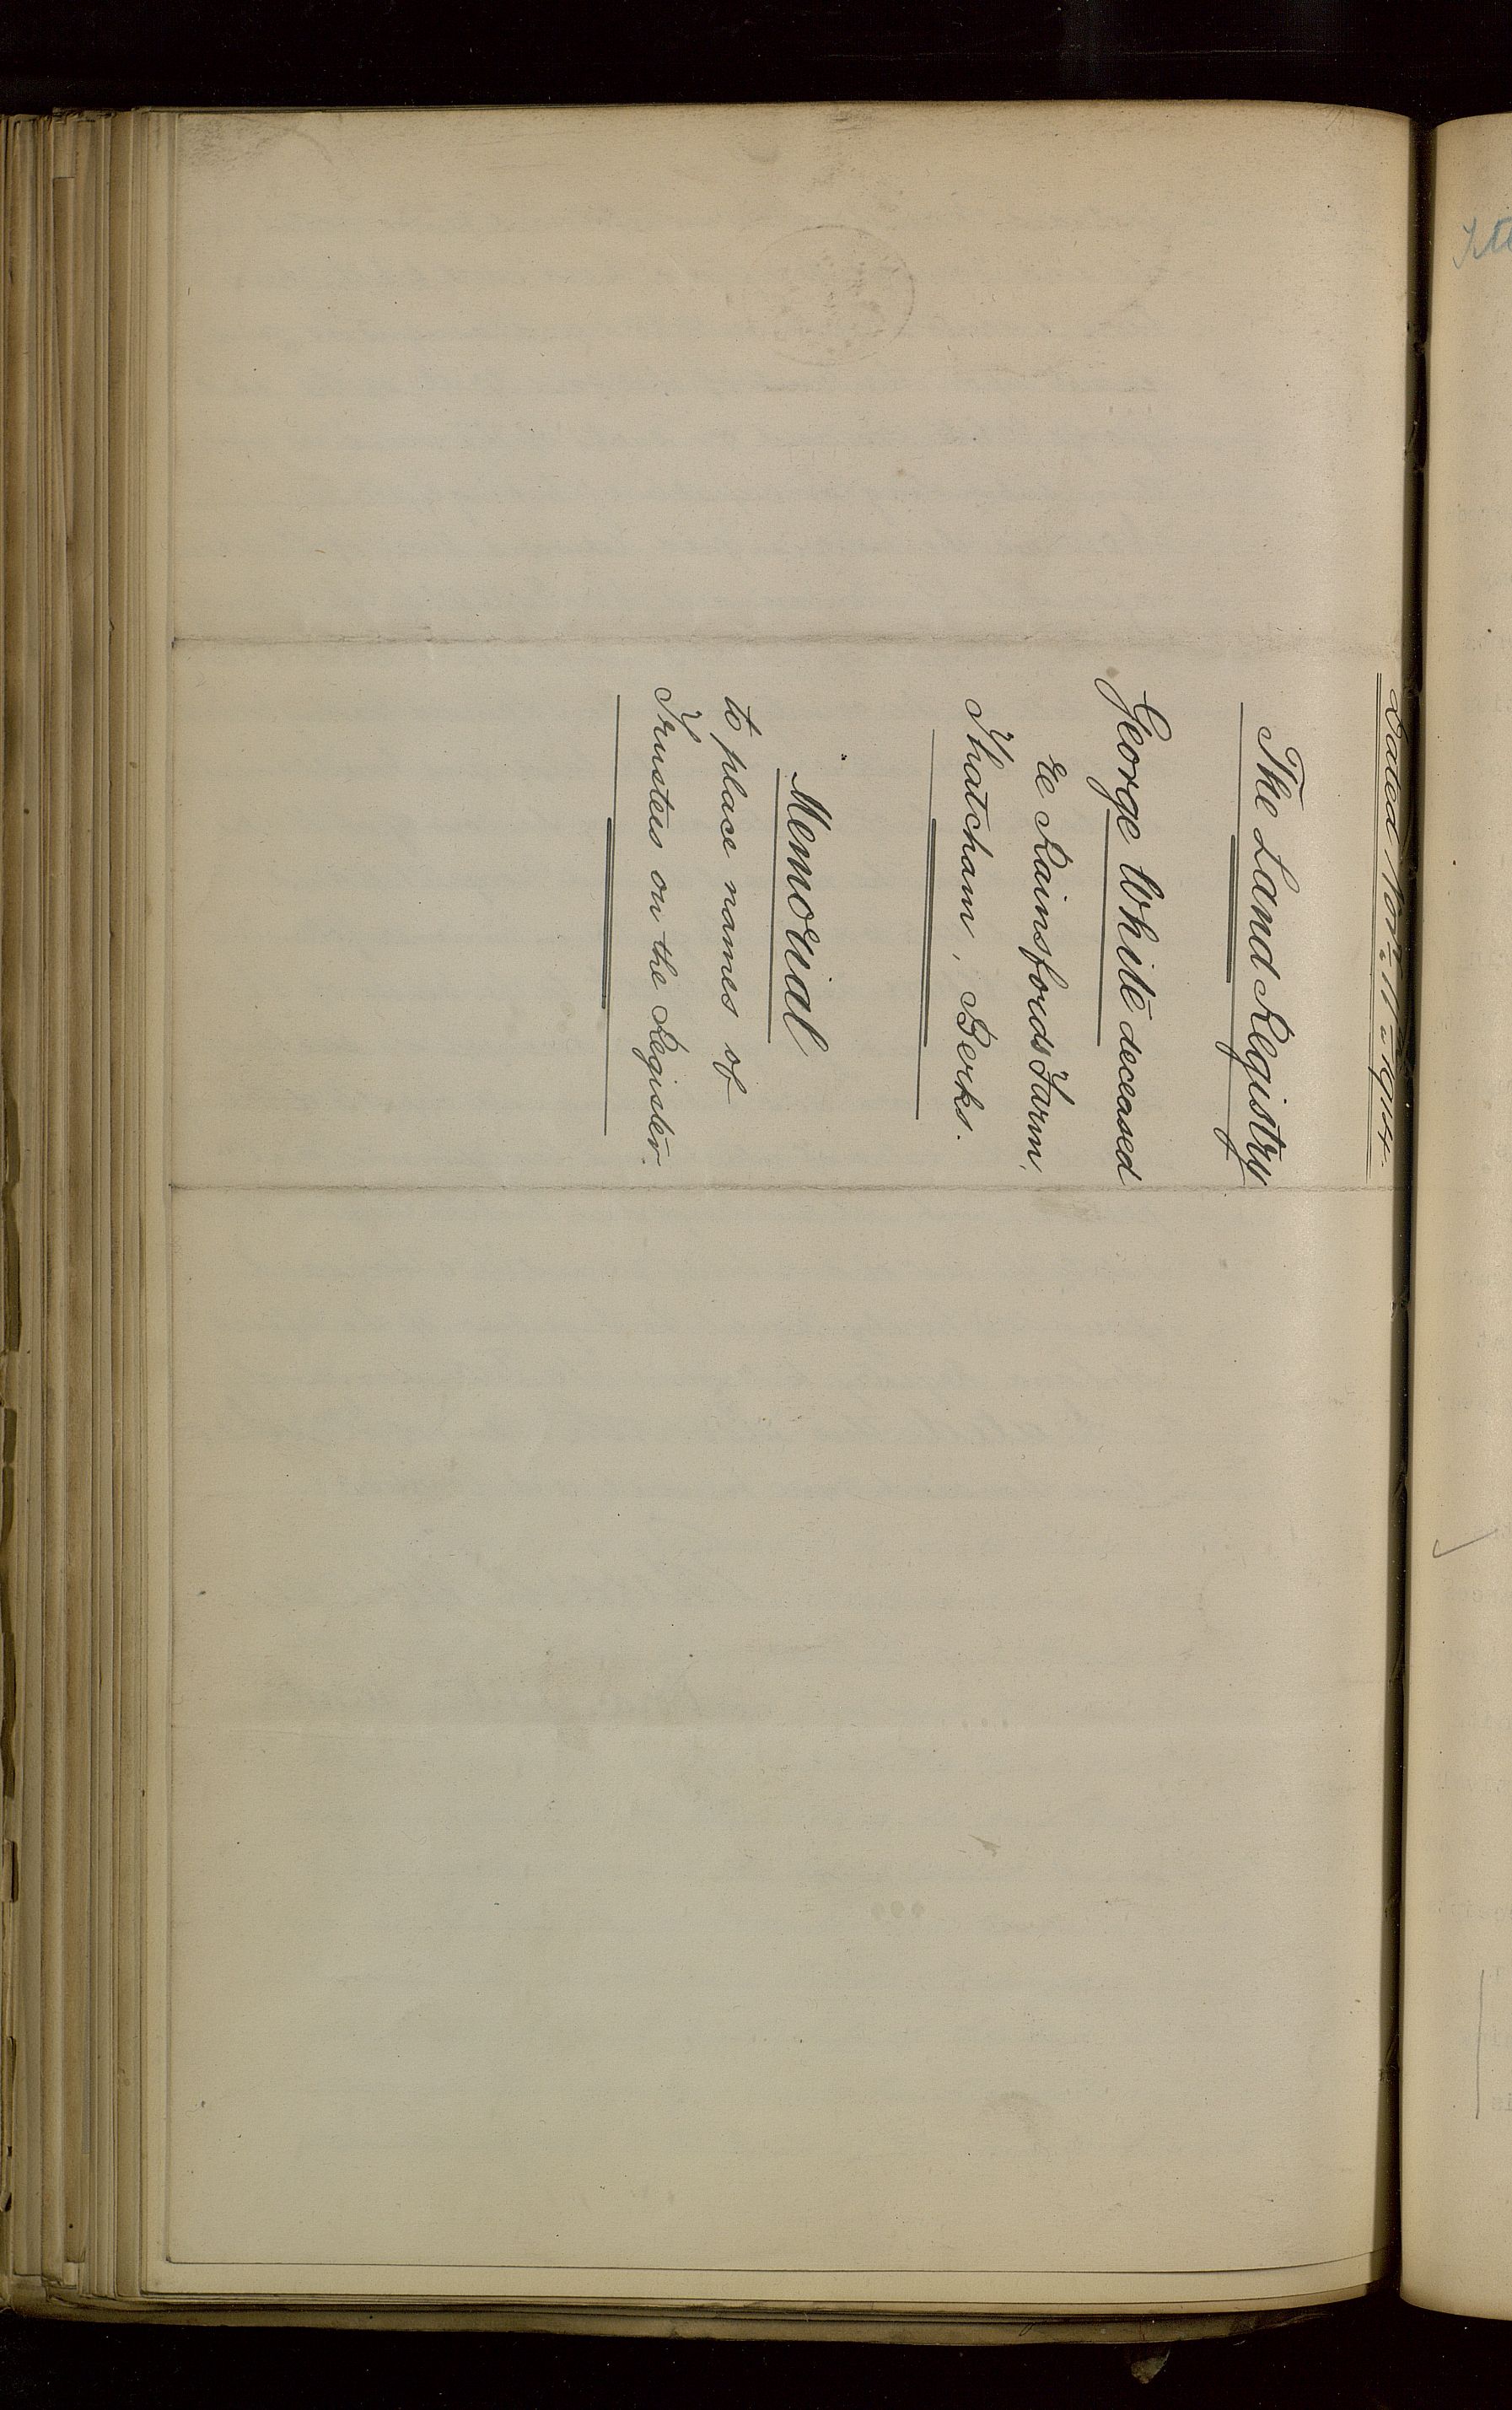 Dated Novr. 11th 1914.
The Land Registry
George White deceased
re Rainsfords Farm,
Thatcham, Berks.
Memorial
to place names of
Trustees on the Register.